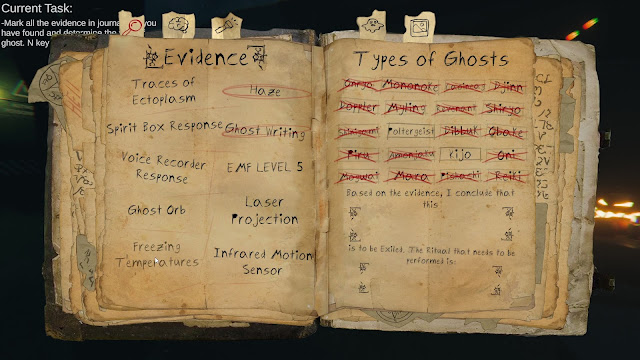 Current Task:
-Mark all the evidence in you
have found and determine the
ghost. N key
Evidence
Traces of
Ectoplasm
Haze
Spirit Box Response
Ghost Writing
Voice Recorder
Response
EMF LEVEL 5
Ghost Orb
Laser
Projection
Freezing
Temperatures
Infrared Motion
Sensor
Types of Ghosts
Onryo Mononoke Djinn
Doppler Myling Revenant Shiryo
Poltergeist Dibbuk Obake
Piru Amanjaku Kijo Oni
Mogwai Mara Pishachi Reiki
Based on the evidence, I conclude that
this
is to be Exiled. The Ritual that needs to be
performed is: